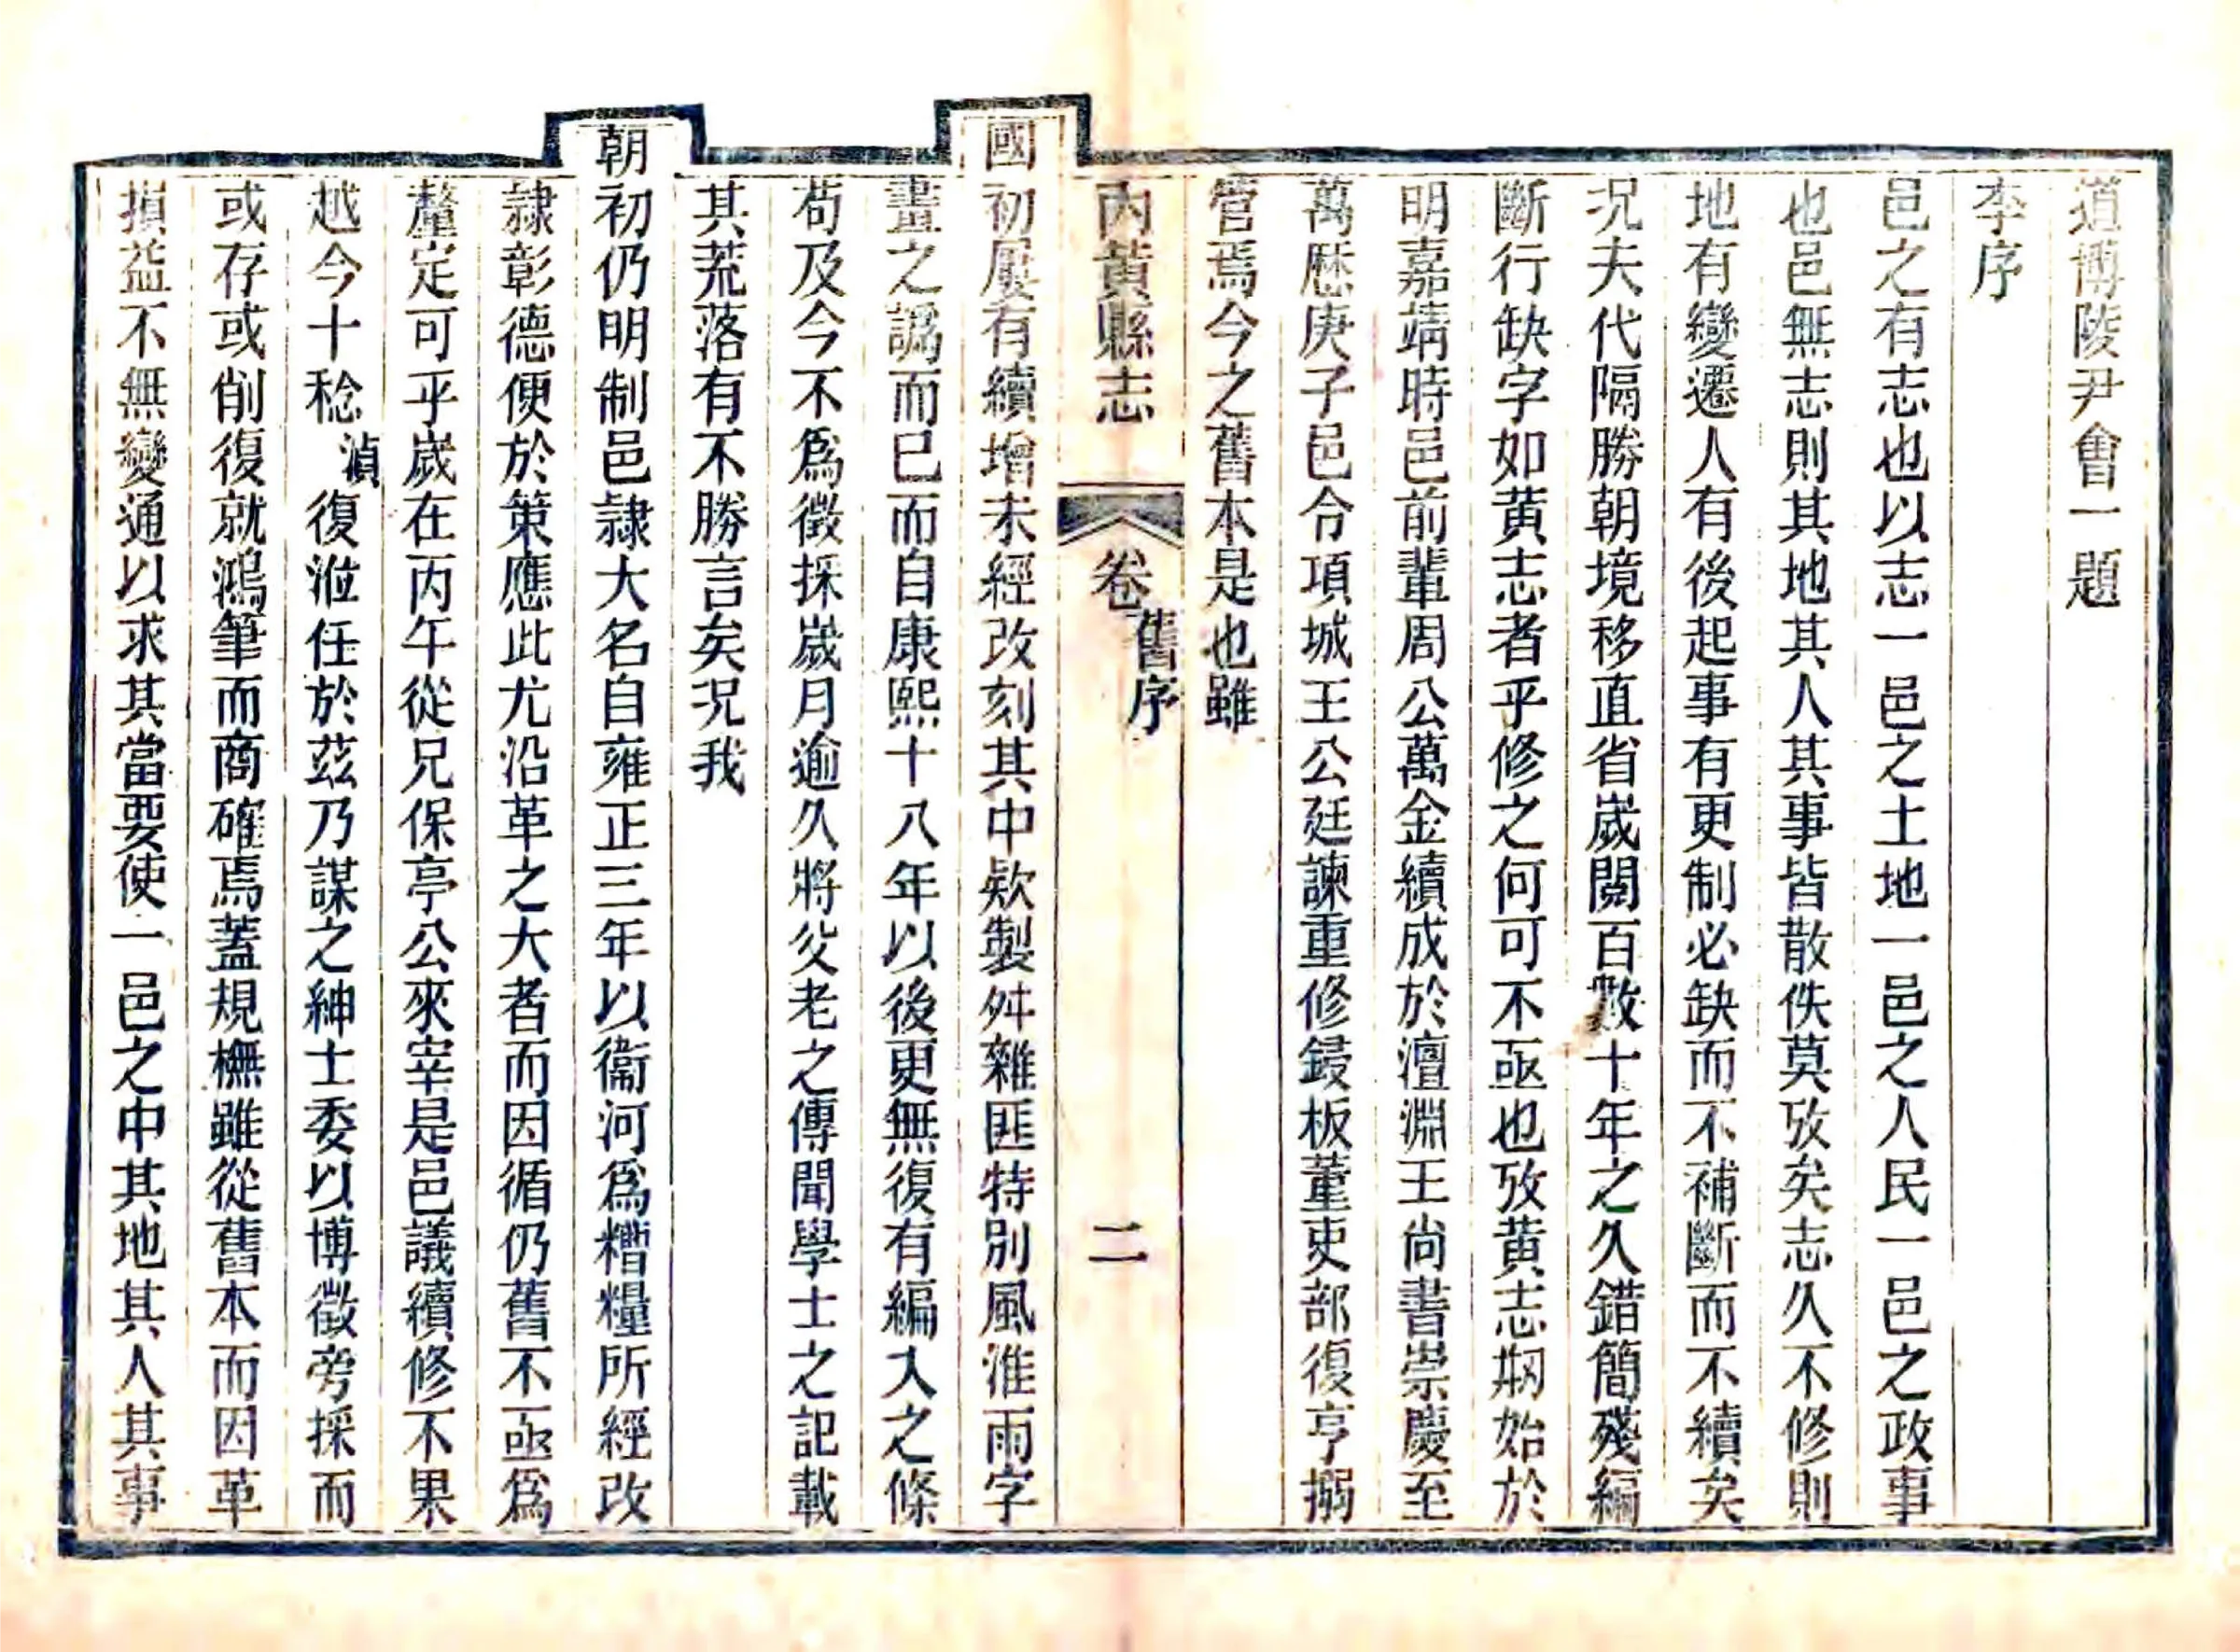 道博陵尹會一題
李序
邑之有志也以志一邑之土地一邑之人民一邑之政事
也邑無志則其地其人其事皆散佚莫攷矣志久不修則
地有變遷人有後起事有更制必缺而不補斷而不續矣
況夫代隔勝朝境移直省歲閱百數十年之久錯簡殘編
斷行缺字如黃志者乎修之何可不亟也攷黃志剏始於
明嘉靖時邑前輩周公萬金續成於澶淵王尚書崇慶至
萬厯庚子邑令項城王公廷諫重修鋟板董吏部復亨搦
管焉今之舊本是也雖
內黃縣志 卷 舊序 二
國初屢有續增未經改刻其中欵製舛雜匪特別風淮雨字
畫之譌而已而自康熙十八年以後更無復有編入之條
苟及今不爲徵採歲月逾久將父老之傳聞學士之記載
其荒落有不勝言矣況我
朝初仍明制邑隷大名自雍正三年以衞河爲糟糧所經改
隷彰德便於策應此尤沿革之大者而因循仍舊不亟爲
釐定可乎歲在丙午從兄保亭公來宰是邑議續修不果
越今十稔湞復涖任於茲乃謀之紳士委以博徵旁採而
或存或削復就鴻筆而商確焉蓋規橅雖從舊本而因革
損益不無變通以求其當要使一邑之中其地其人其事